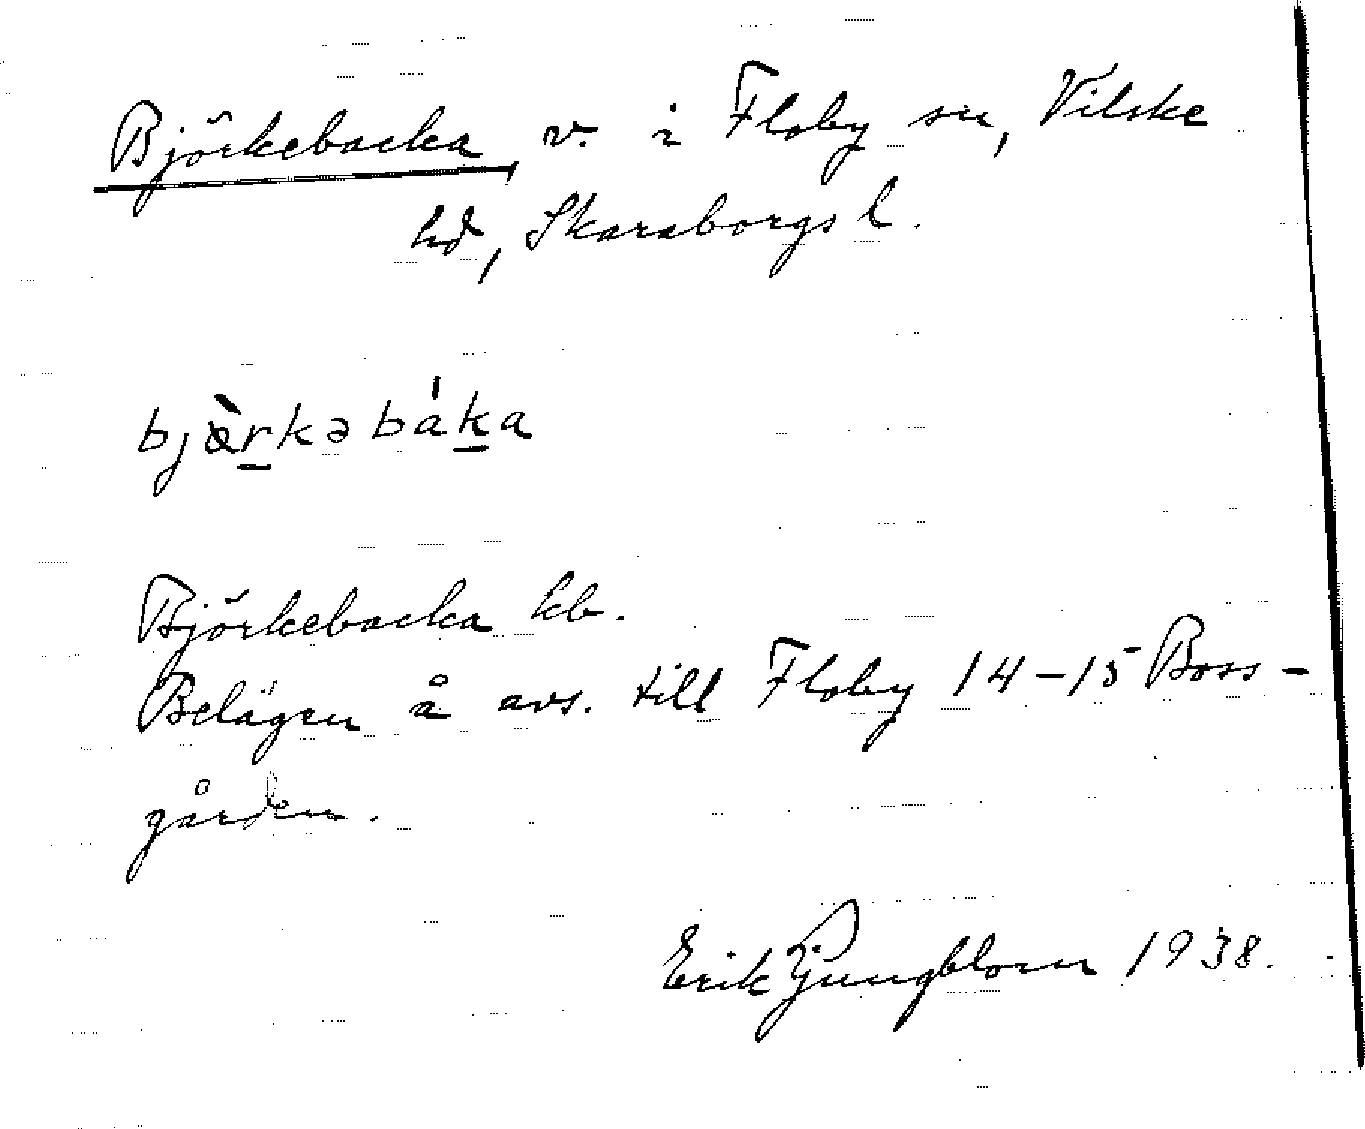 Björkebacka, v. i Floby sn, Vilske
hd, Skaraborgs l.
bjæ̀rkəbáka
Björkebacka kb.
Belägen å avs. till Floby 14-15 Boss-
gården.
Erik Ljungblom 1938.